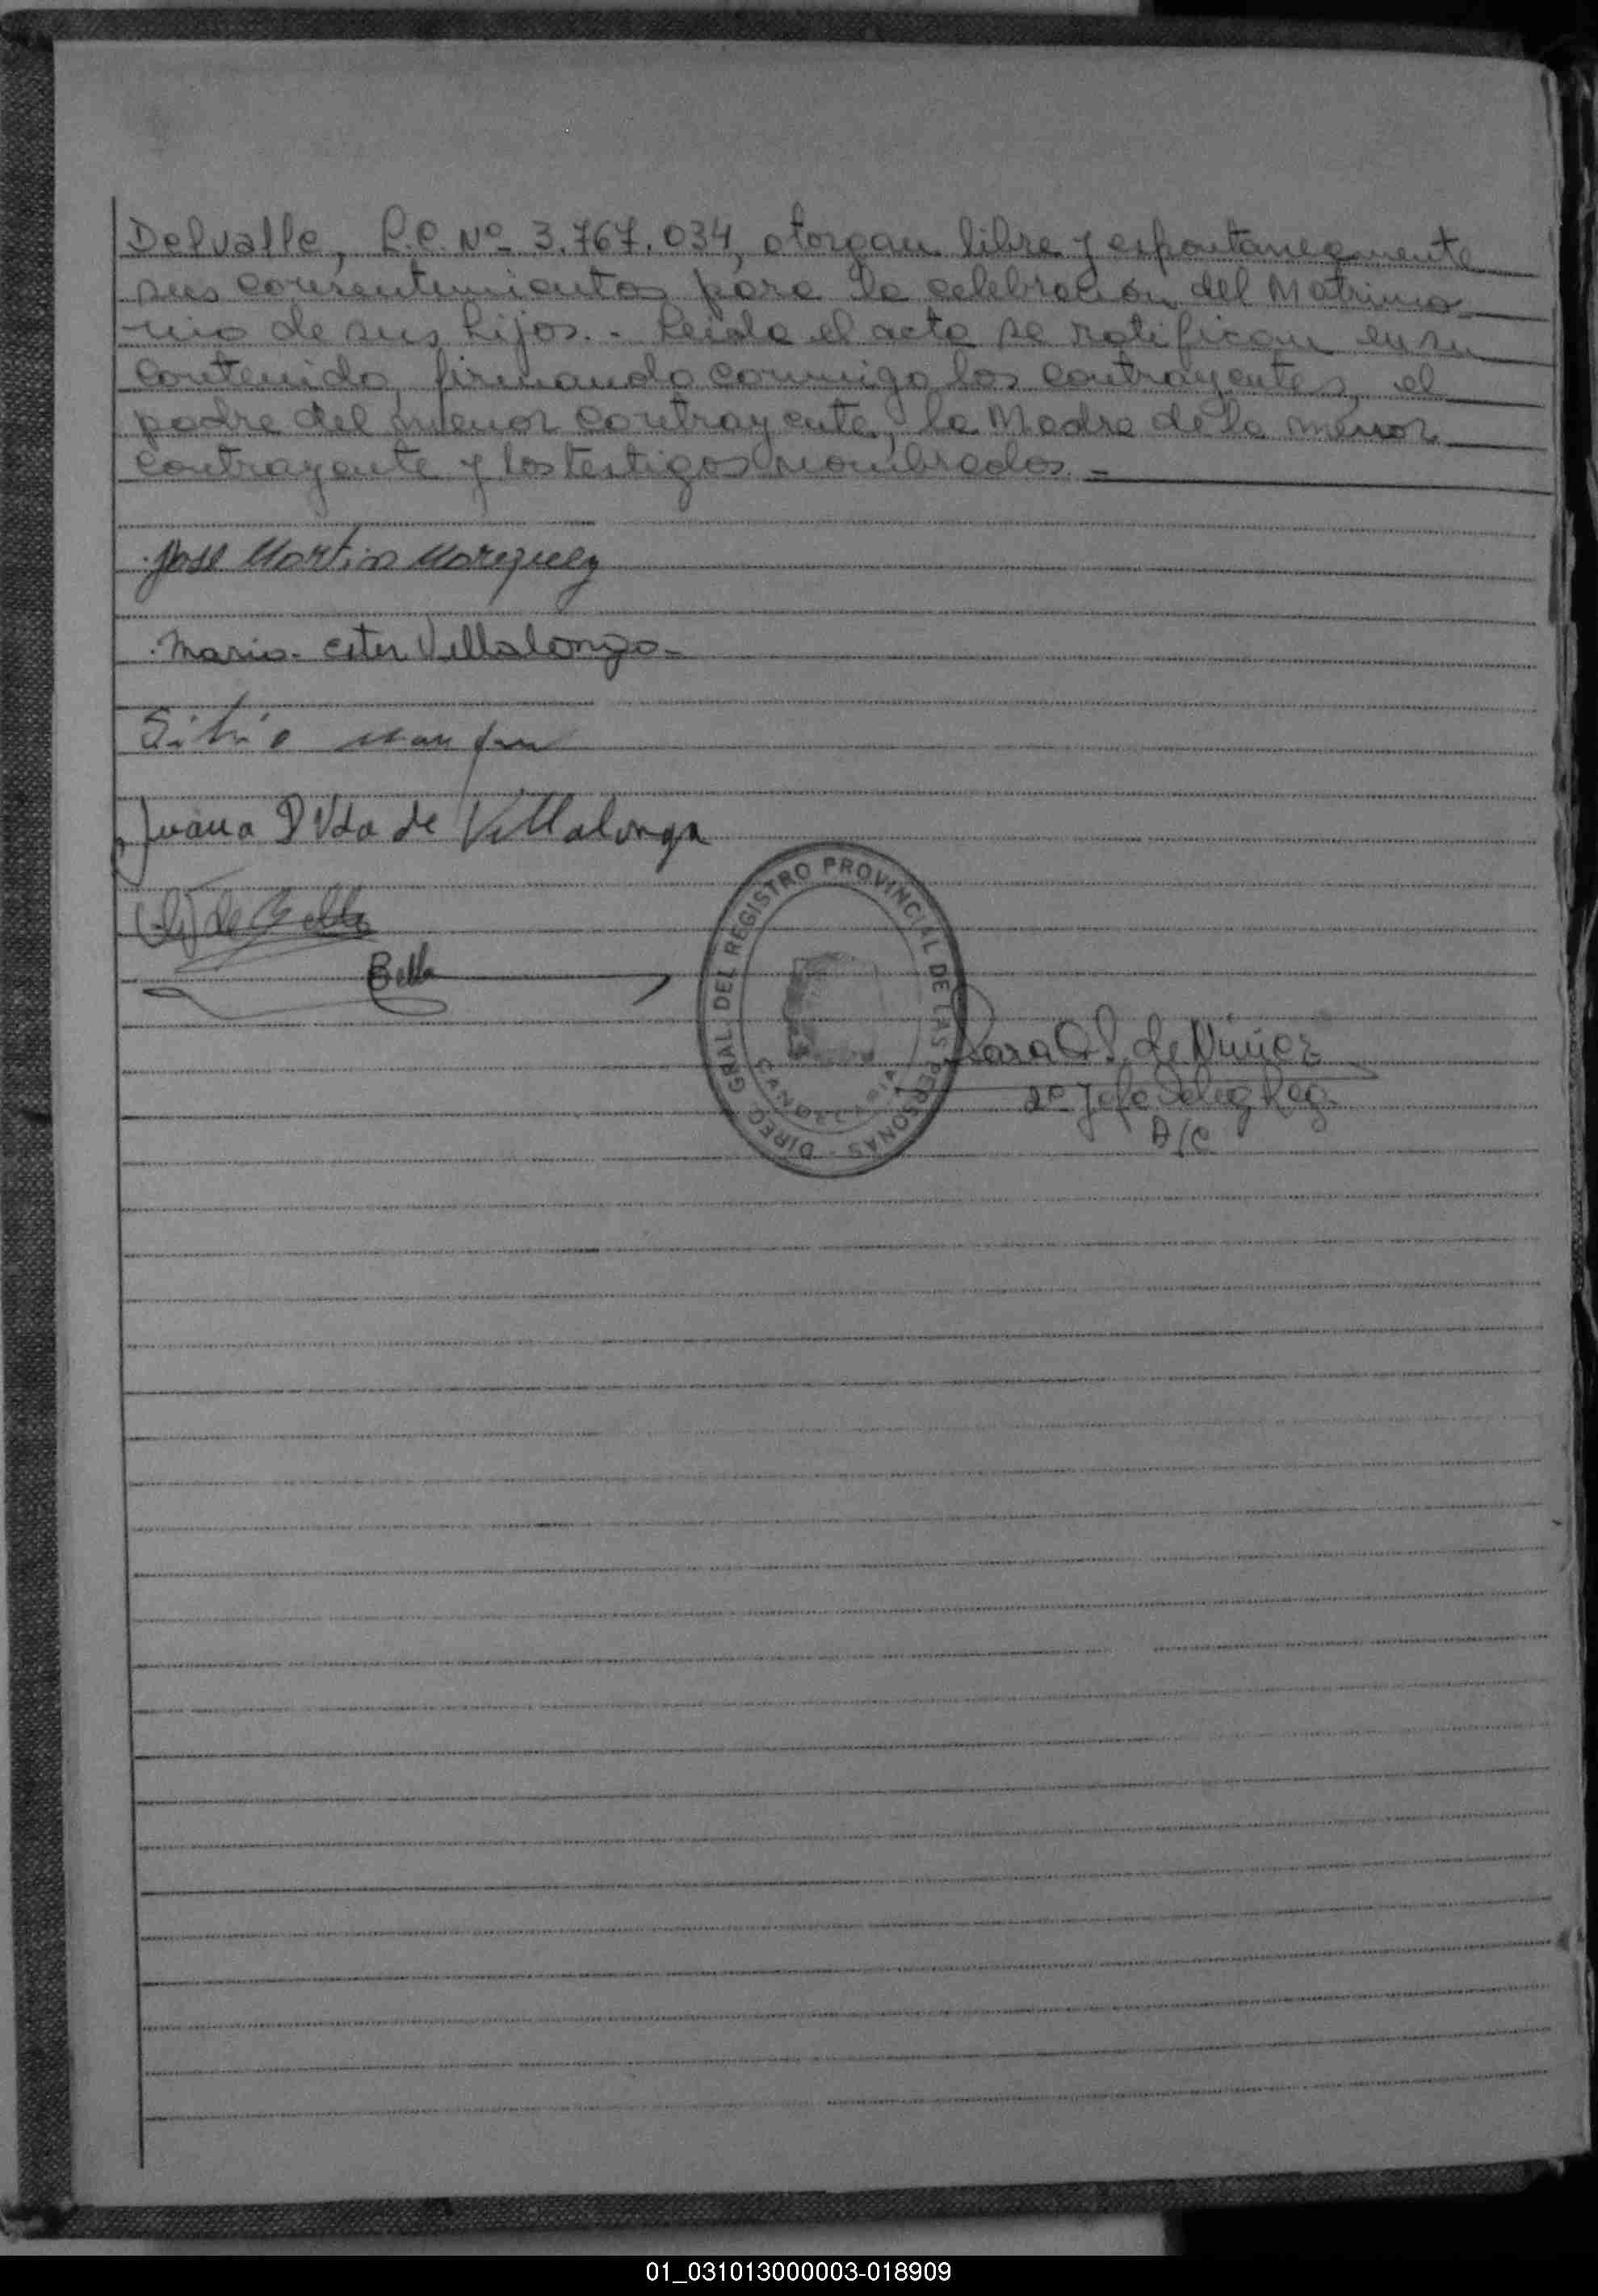 Delvalle, L.C. Nº 3.767.034, otorgan libre y espontaneamente
sus consentimientos para la celebración del Matrimo-
nio de sus hijos.- Leida el acta se ratifican en su
contenido, firmando conmigo los contrayentes, el
padre del menor contrayente, la Madre de la menor
contrayente y los testigos nombrados.-
Jose Martin Marquez
Maria Ester Villalonga
Juana D Vda de Villalonga
de Bello
Bello
DIREC. GRAL. DEL REGISTRO PROVINCIAL DE LAS PERSONAS
CANDELARIA
Sara de Nuñez
2º Jefe Deleg Reg.
A/C
01_031013000003-018909